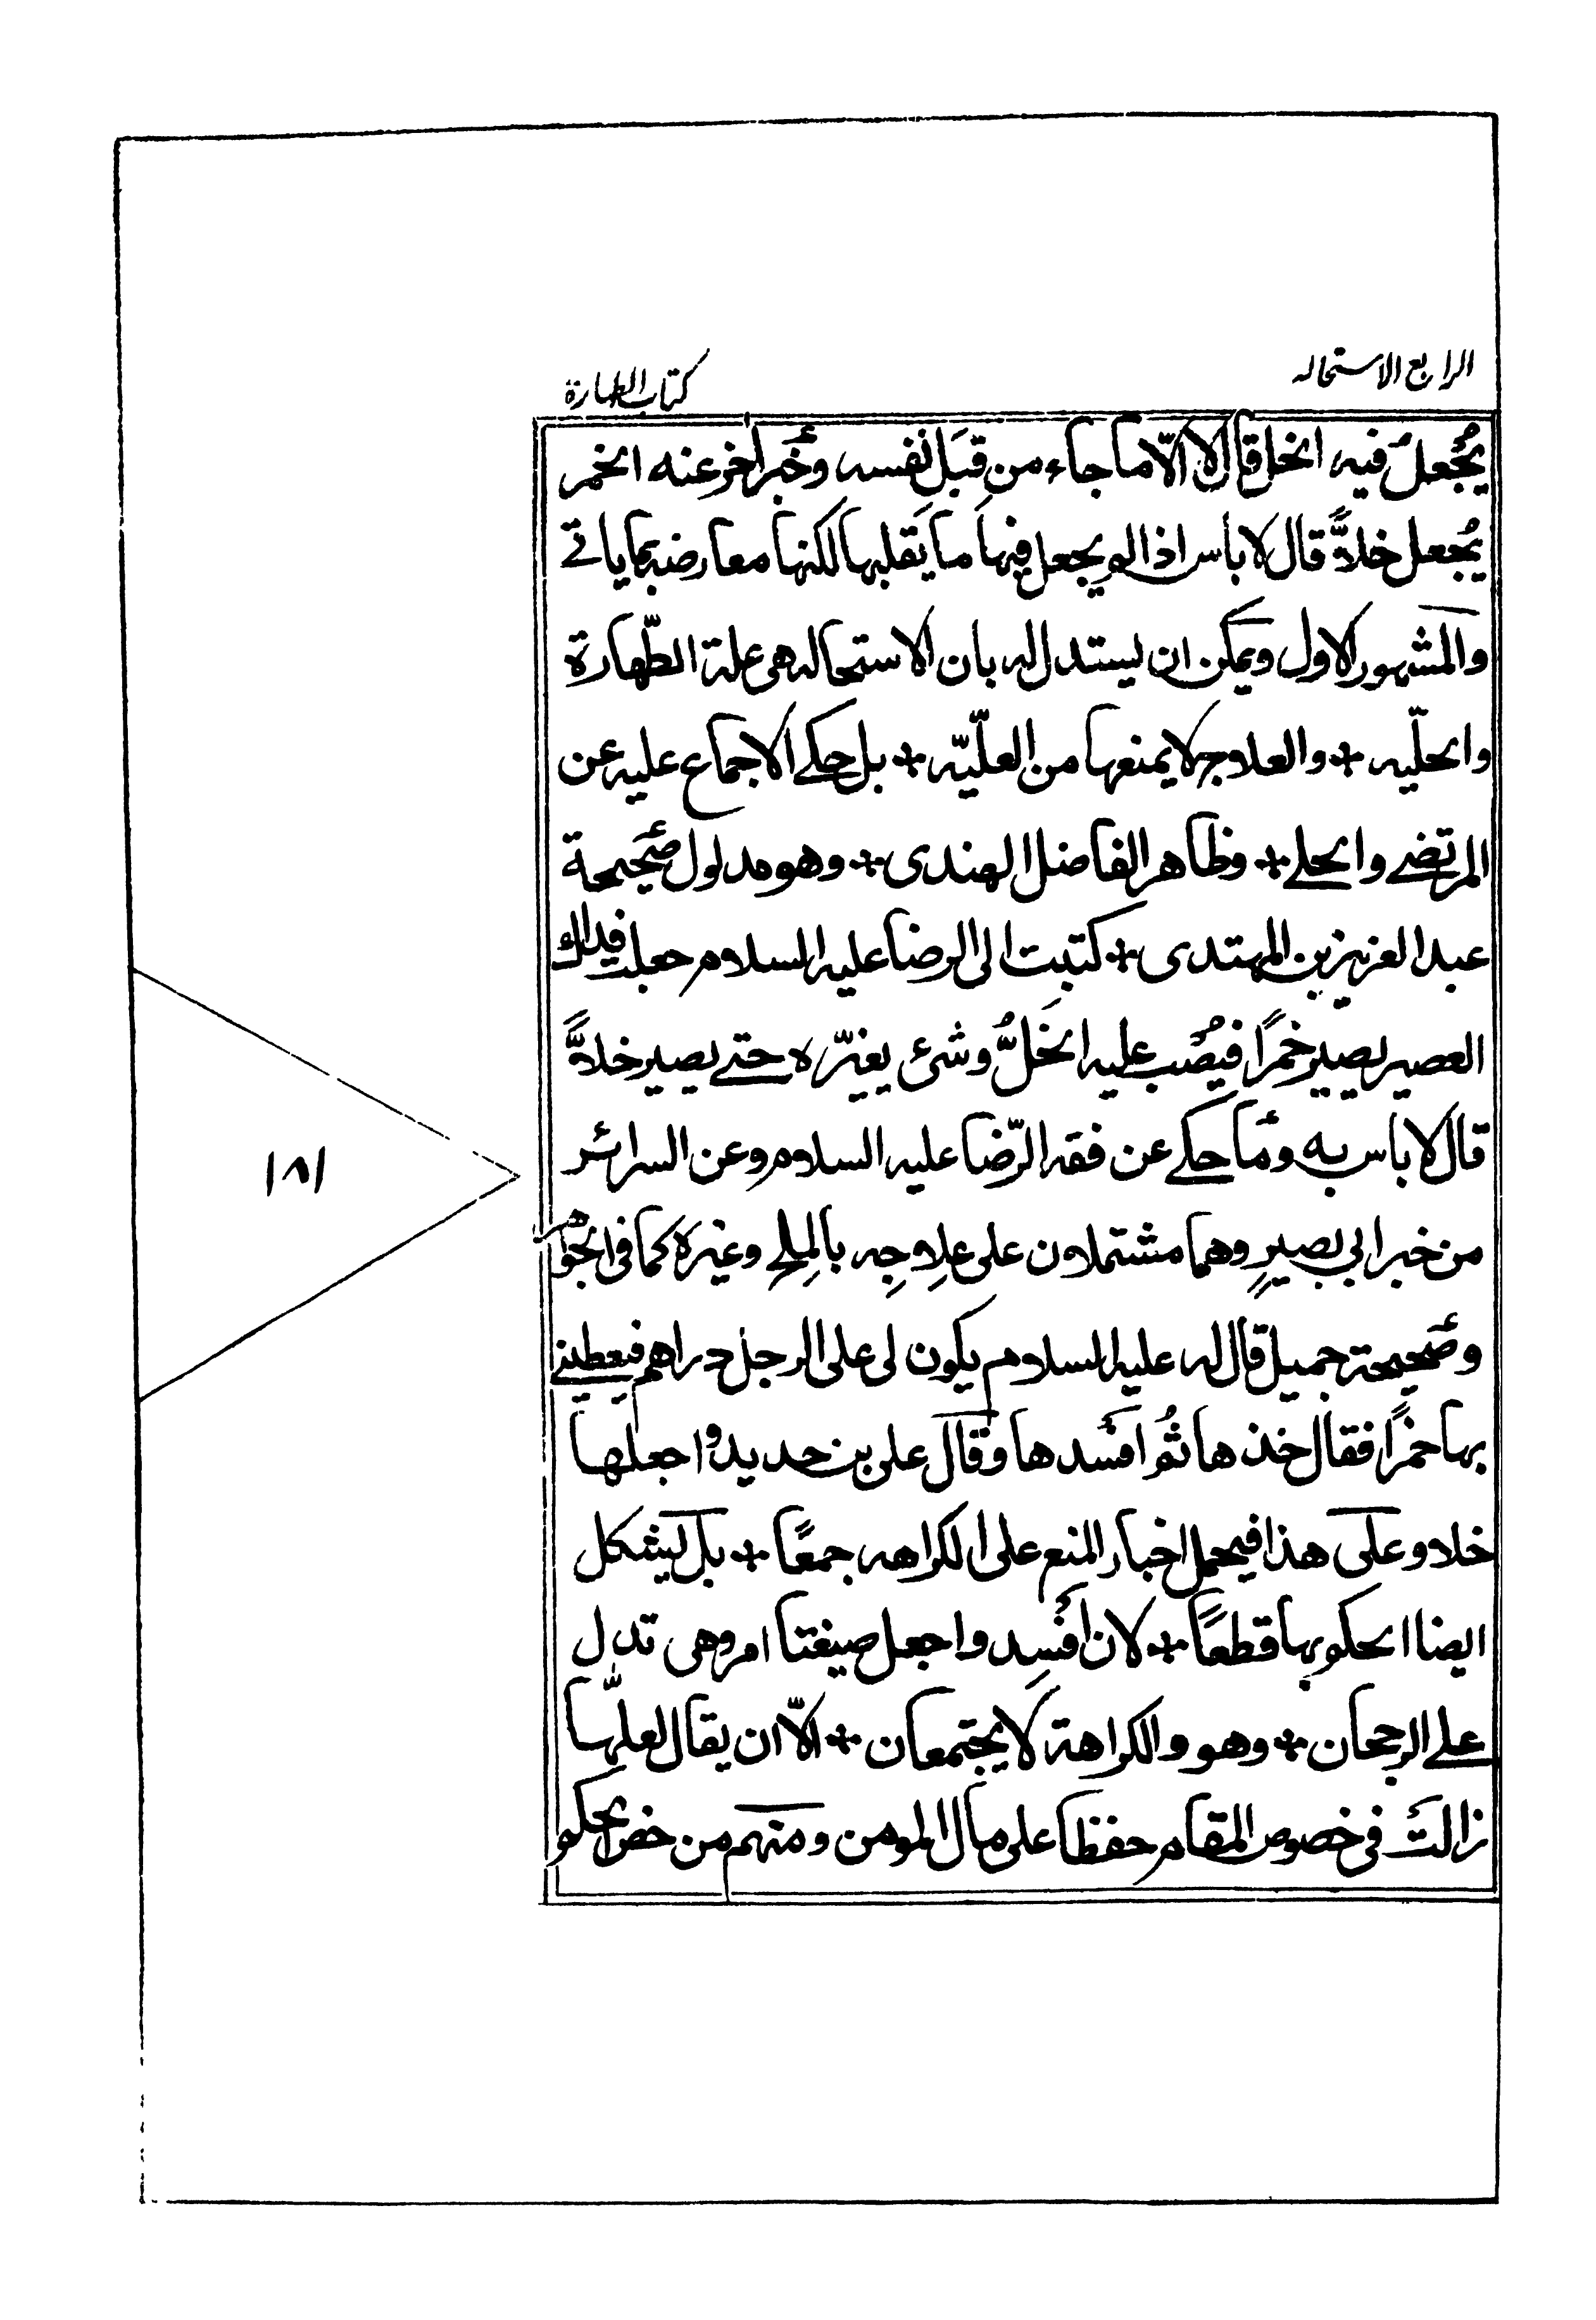 الرابع الاستحاله
كتاب الطهارة
يُجعلُ فيه الخل قال لا الّا ما جاء من قِبَل نفسه وخَبر اخر عنه الخمر
يُجعل خلاًّ قال لا باس اذا لم يجعل فيها ما يَقلبها لكنها معارضة بما ياتے
والمشهور الاول ويمكن ان يستدل له بان الاستحاله هى علة الطّهارة
والحلّيه * والعلاج لا يمنعها من العلّيّه * بل حكے الاجماع عليه عن
المرتضے والحلے * وظاهر الفاضل الهندى * وهو مدلول صَحيحة
عبد العزيز بن المهتدى * كتبت الى الرضا عليه السلام جعلت فداك
العصير يصير خمرًا فيُصب عليه الخَلُّ وشئ يغيّره حتے يصير خلاًّ
قال لا باس به وَما حكے عن فقه الرّضا عليه السلام وعن السرائر
من خبر ابي بصيرٍ وهما مشتملان على عِلاجِه بالمِلح وغيره كما فى الجواهر
وصَحيحة جميل قال له عليه السلام يكون لى على الرجل دراهم فيعطينے
بها خمرًا فقال خذها ثُم افسَدها وقال على بن حديد واجعلها
خلا وعلى هذا فيحمل اخبار المنع على الكراهه جمعًا * بل يشكل
ايضا الحكم بها قطعًا * لان أفسِد واجعل صيغتا امر وهى تدل
علے الرجحان * وهو والكراهة لا يجتمعان * الّا ان يقال لعلّها
زالتَ فى خصوص المقام حفظا على مال المومن ومنهم من خصّ الحكم
١٨١